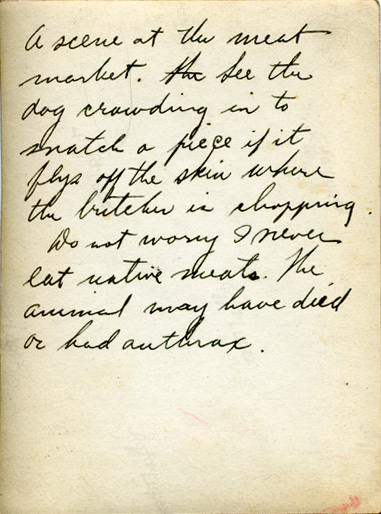 A scene at the meat
market. the See the
dog crowding in to
snatch a piece if it
flys off the skin where
the butcher is chopping.
Do not worry I never
eat native meats. The
animal may have died
or had anthrax.